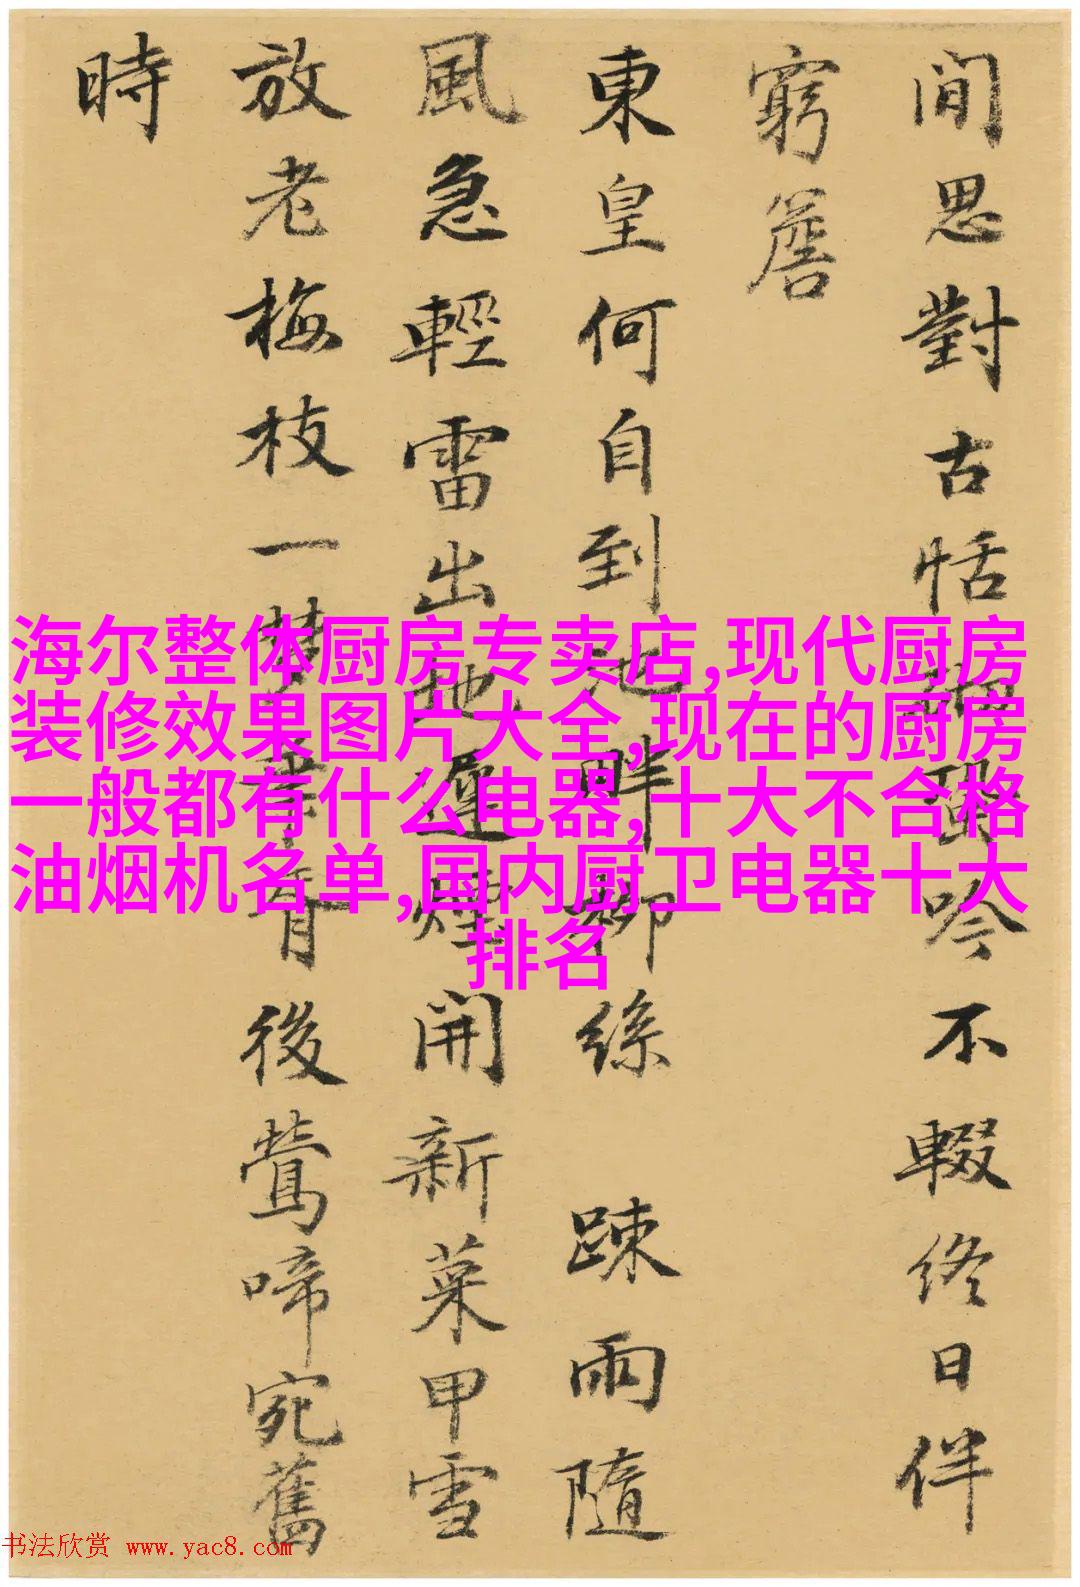 間思對古恬吟不輟終日伴
窮簷
東皇何自到池畔柳絲踈雨隨
風急輕雷出地遲煙開新菜甲雪
放老梅枝一夢春後鶯啼宛舊
時
海尔整体厨房专卖店,现代厨房
装修效果图片大全,现在的厨房
一般都有什么电器,十大不合格
油烟机名单,国内厨卫电器十大
排名
书法欣赏 www.yac8.com